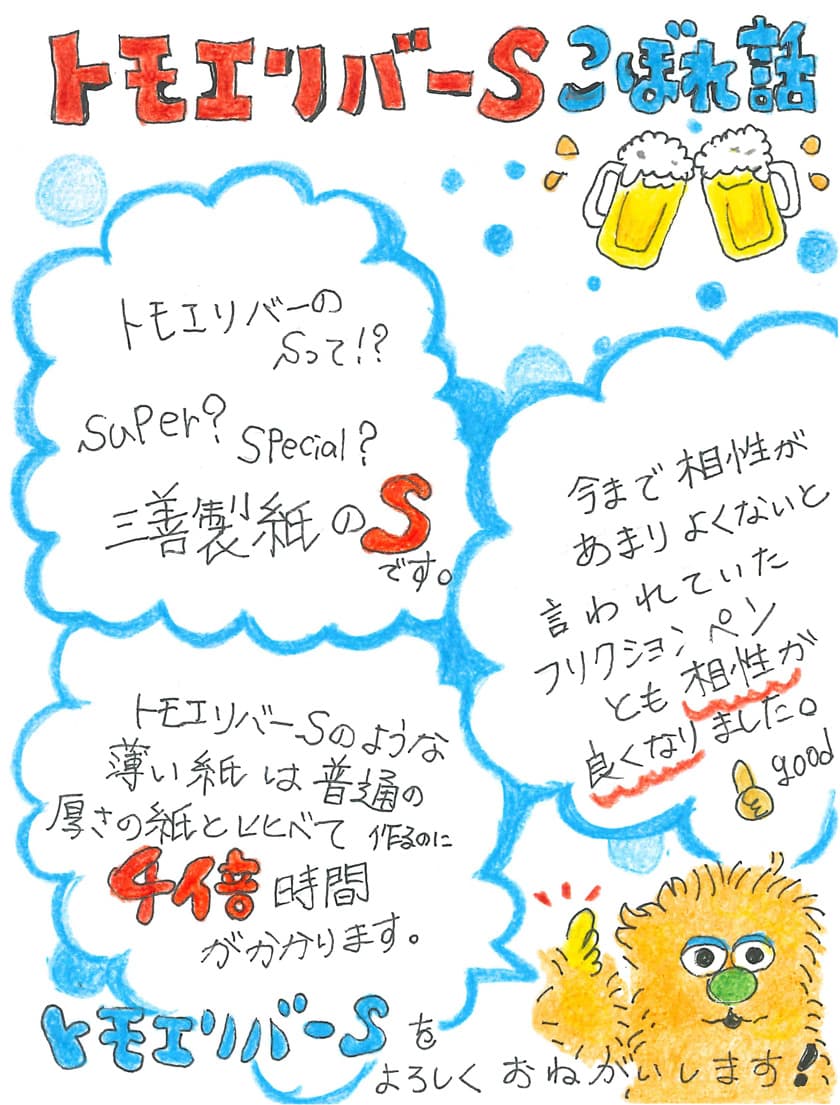 トモエリバーSこぼれ話
トモエリバーの
Sって!?
Super? Special?
三善製紙のS
です。
今まで相性が
あまりよくないと
言われていた
フリクションペン
とも相性が
良くなりました。
good
トモエリバーSのような
薄い紙は普通の
厚さの紙とヒヒべて作るのに
4倍時間
がかかります。
トモエリバーSを
よろしくおねがいします!